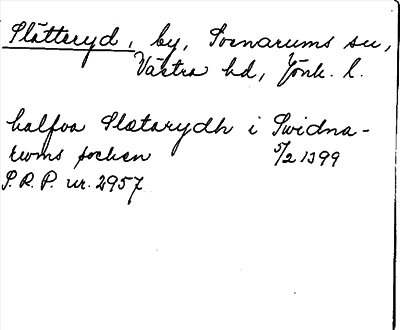 Slätteryd, by, Svenarums sn,
Västra hd, Jönk. l.
halfva Slætarydh i Swidna-
rwms sochen 5/2 1399
S.R.P. nr. 2957